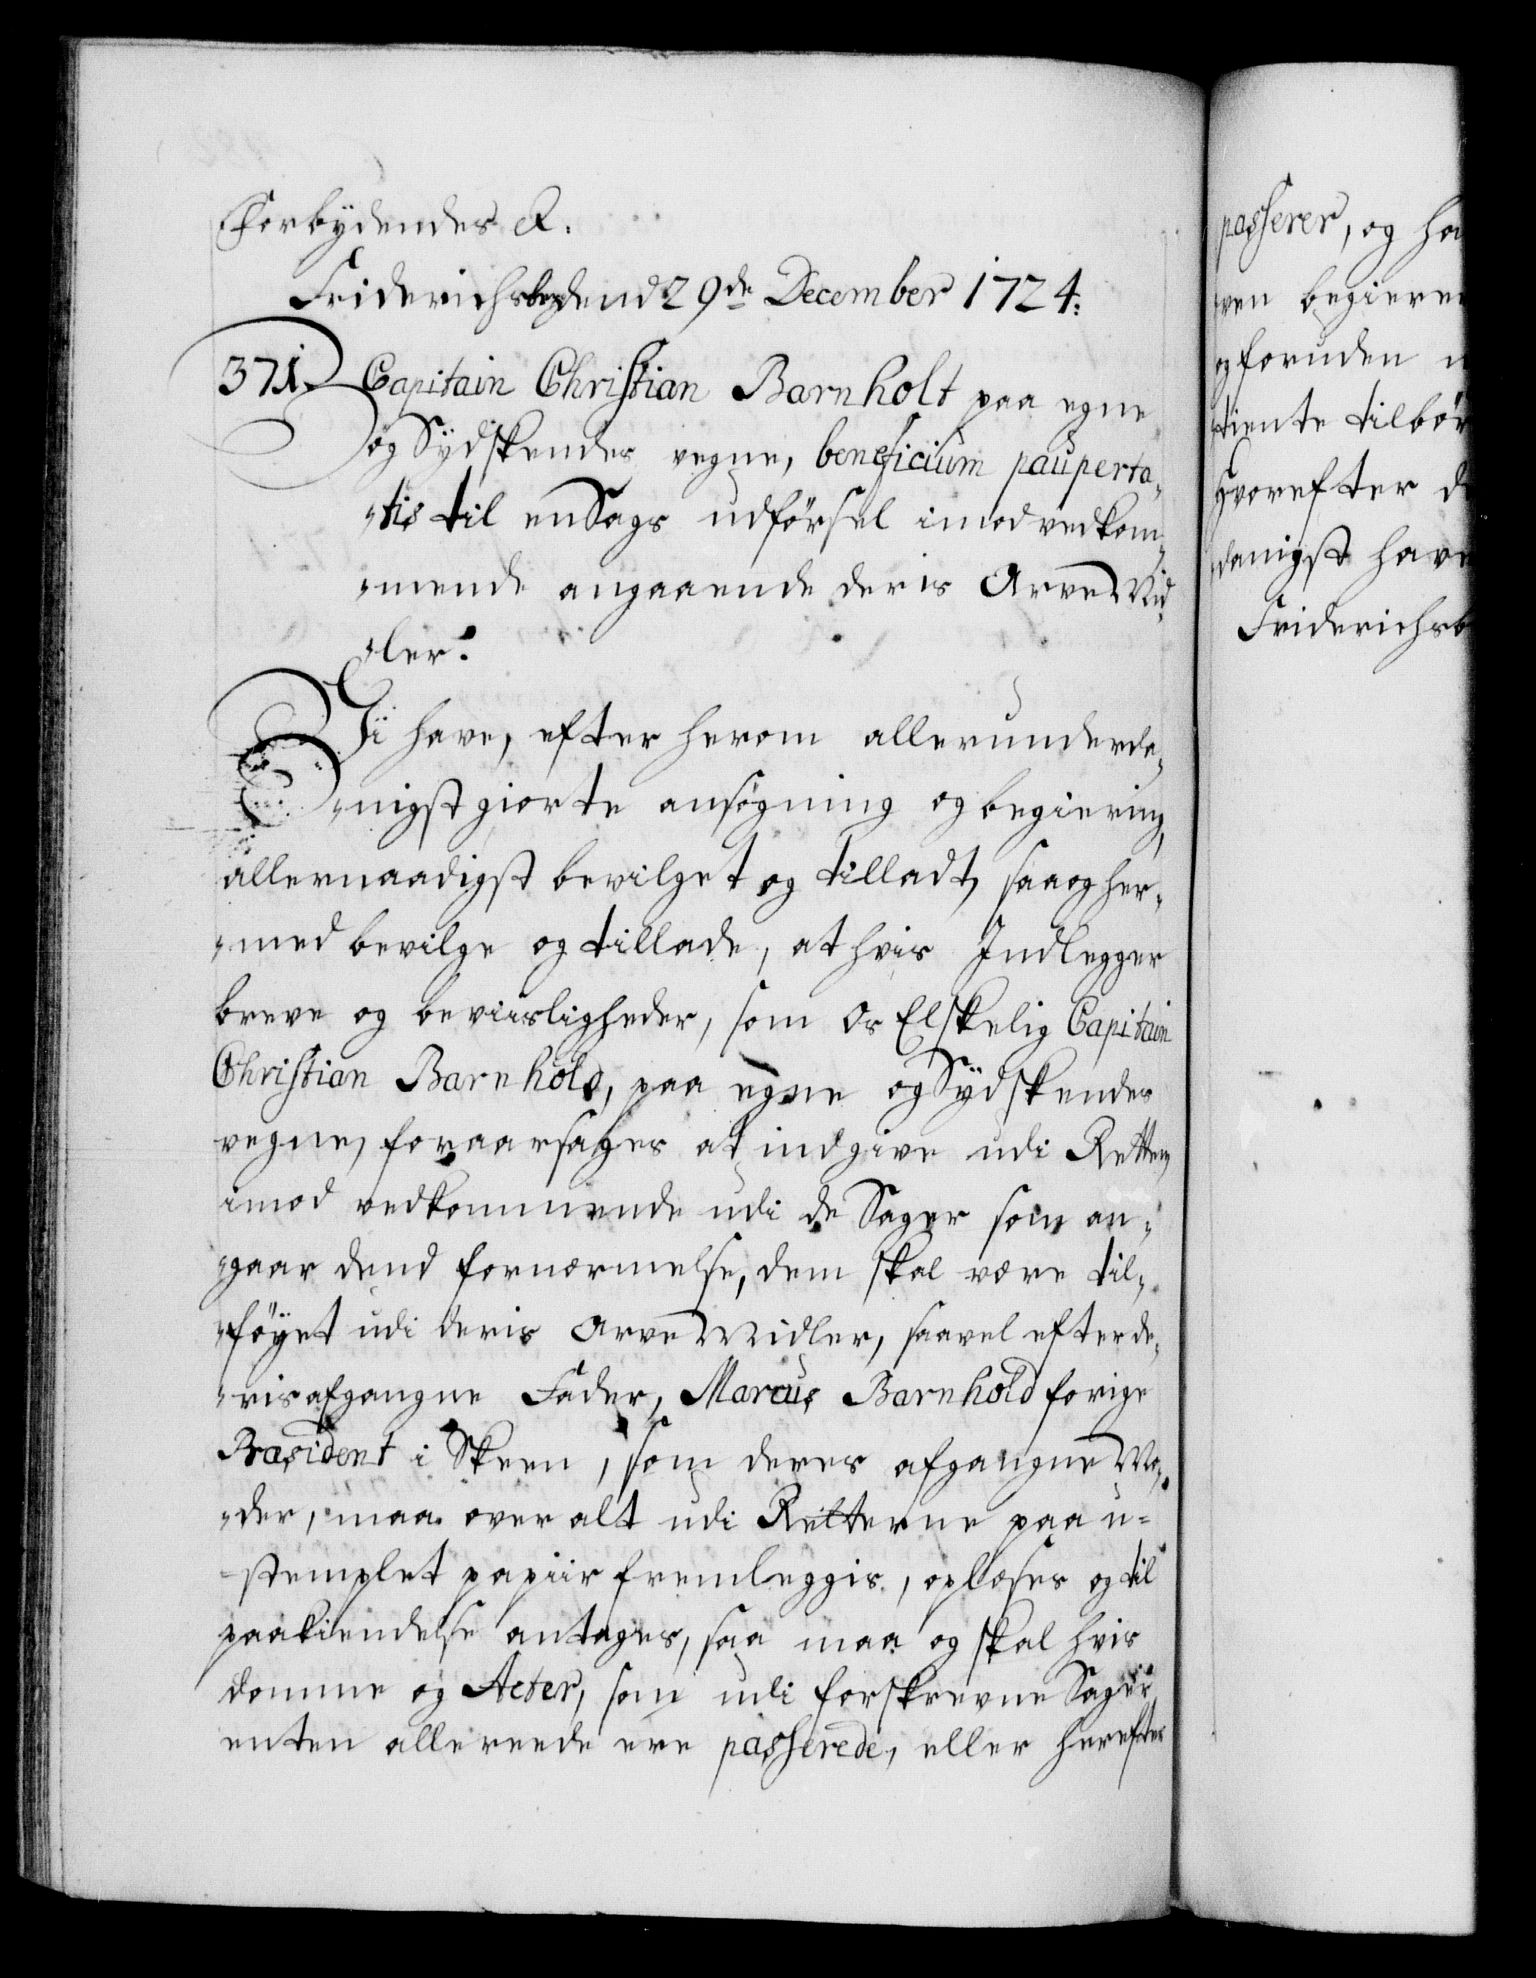 Forbydendes &.
Friderichsberg dend 29de December 1724.
371. Capitain Christian Barnholt paa egne
og Sydskendes vegne, beneficium pauperta„
„tis til en Sags udførsel imod vedkom„
„mende angaaende deris Arve Mid„
„ler.
Vii have, efter herom allerunderda„
„nigst giorte ansøgning og begiering,
allernaadigst bevilget og tilladt, saa og her„
„med bevilge og tillade, at hvis Indlegger
breve og beviisligheder, som Os Elskelig Capitain
Christian Barnhold, paa egne og Sydskendes
vegne, foraarsages at indgive udi Retten
imod vedkommende udi de Sager som an„
„gaar dend fornærmelse, dem skal være til„
„føyet udi deris Arve Midler, saavel efter de„
„ris afgangne Fader, Marcus Barnhold forige
Præsident i Skeen, som deres afgangne Mo„
„der, maa over alt udi Retterne paa u-
stemplet papiir fremleggis, oplæses og til
paakiendelse antages, saa maa og skal hvis
domme og Acter, som udi forskrevne Sager
enten allereede ere passerede, eller herefter
passerer, og ha
ven begieren
og foruden
tiente tilbør
Hvorefter d
danigst have
Friderichsb